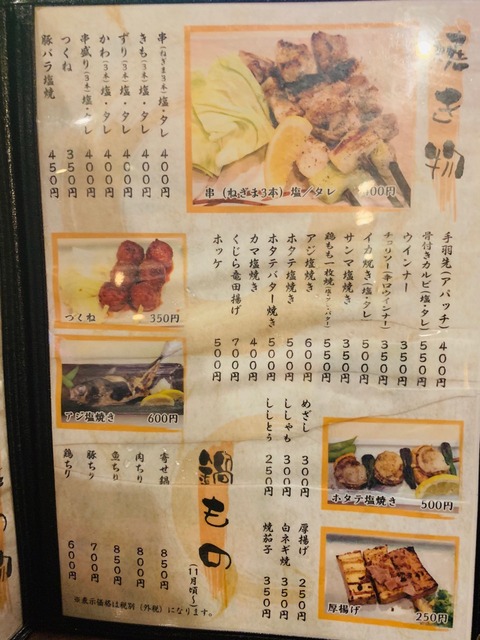 焼き物
串(ねぎま3本)塩/タレ 400円
串(ねぎま3本)塩・タレ 400円
きも(3本)塩・タレ 400円
ずり(3本)塩・タレ 400円
かわ(3本)塩・タレ 400円
串盛り(3本)塩・タレ 400円
つくね 350円
豚バラ塩焼 450円
手羽先(アパッチ) 400円
骨付きカルビ(塩・タレ) 550円
ウインナー 350円
チョリソー(辛口ウインナー) 350円
イカ焼き(塩・タレ) 550円
サンマ塩焼き 350円
鶏もも一枚焼(塩・タレ・バター) 550円
アジ塩焼き 600円
ホタテ塩焼き 500円
ホタテバター焼き 500円
カマ塩焼き 400円
くじら竜田揚げ 700円
ホッケ 500円
つくね 350円
アジ塩焼き 600円
めざし 300円
ししゃも 300円
ししとう 250円
厚揚げ 250円
白ネギ焼 350円
焼茄子 350円
ホタテ塩焼き 500円
厚揚げ 250円
鍋もの
(11月頃〜)
寄せ鍋 850円
肉ちり 800円
魚ちり 850円
豚ちり 700円
鶏ちり 600円
※表示価格は税別(外税)になります。